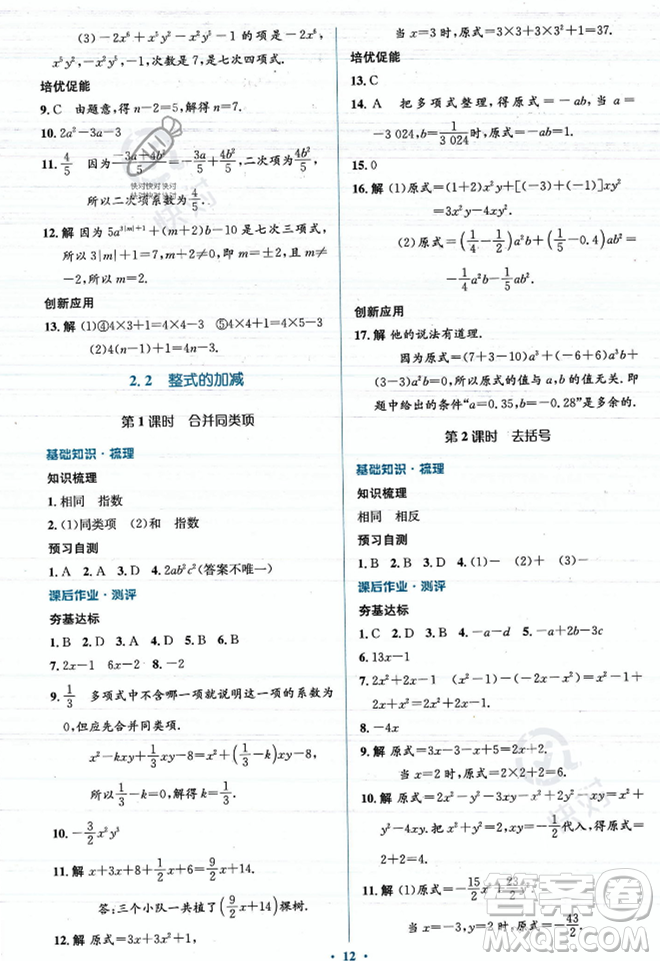 (3)-2x⁶+x⁵-x²y⁵-x²-1.
-x²y⁵-1,次数是7,是七次四项式.
培优促能
9. C 由题意,得n-2=5,解得n=7.
10. 2a²-3a-3
11. 4/5 因为(-3a+4b²)/5=-3a/5+4b²/5,二次项为4b²/5,
所以二次项系数为4/5.
12. 解 因为5a^(3|m|+1)+(m+2)b-10是七次三项式,
所以3|m|+1=7,m+2≠0,即m=±2,且m≠
-2.所以m=2.
创新应用
13. 解 (1)④4×3+1=4×4-3 ⑤4×4+1=4×5-3
(2)4(n-1)+1=4n-3.
2.2 整式的加减
第1课时 合并同类项
基础知识·梳理
知识梳理
1. 相同 指数
2. (1)同类项 (2)和 指数
预习自测
1. A 2. A 3. D 4. 2ab²c³(答案不唯一)
课后作业·测评
夯基达标
1. B 2. B 3. D 4. D 5. B 6. B
7. 2x-1 6x-2 8. -2
9. 1/3 多项式中不含哪一项就说明这一项的系数为
0,但应先合并同类项.
x²-kxy+1/3xy-8=x²+(1/3-k)xy-8,
所以1/3-k=0.所以k=1/3.
10. -3/2x²y³
11. 解 x+3x+8+x/2+6=9/2x+14.
答:三个小队一共植了(9/2x+14)棵树.
12. 解 原式=3x-3x+3x²+x²+1=x²+
当x=3时,原式=3×3+3×3²+1=37.
培优促能
13. C
14. A 把多项式整理,得原式=-ab,当a=
-3 024,b=1/3 024时,原式=1.
15. 0
16. 解 (1)原式=(1+2)x²y+[(-3)+(-1)]xy²
=3x²y-4xy².
(2)原式=(1/4-1/2)a²b+(2/5-0.4)ab²=
-1/4a²b-1/2a²b.
创新应用
17. 解 他的说法有道理.
因为原式=(7+3-10)a³+(-6+6)a³b+
(3-3)a²b=0,所以原式的值与a,b的值无关.即
题中给出的条件“a=0.35,b=-0.28”是多余的.
第2课时 去括号
基础知识·梳理
知识梳理
相同 相反
预习自测
1. B 2. C 3. D 4. (1)- (2)+ (3)-
课后作业·测评
夯基达标
1. C 2. D 3. D 4. -a-d 5. 2a+2b-3c
6. 13x-1
7. 2x²+2x-1
2x²+x=-x²-x+1+2x²+2x-1.
8. -4x
9. 解 原式=3x-3-x+5=2x+2.
当x=2时,原式=2×2+2=6.
10. 解
x²y²-4xy.将x=2,y=-1/2代入,得原式=
2+2=4.
11. 解 (1)原式=
当x=-3,y=2时,原式=-43/2.
快对快对 快对
快对快对 快对
快对
快对
答案圈
MXQE.COM
12